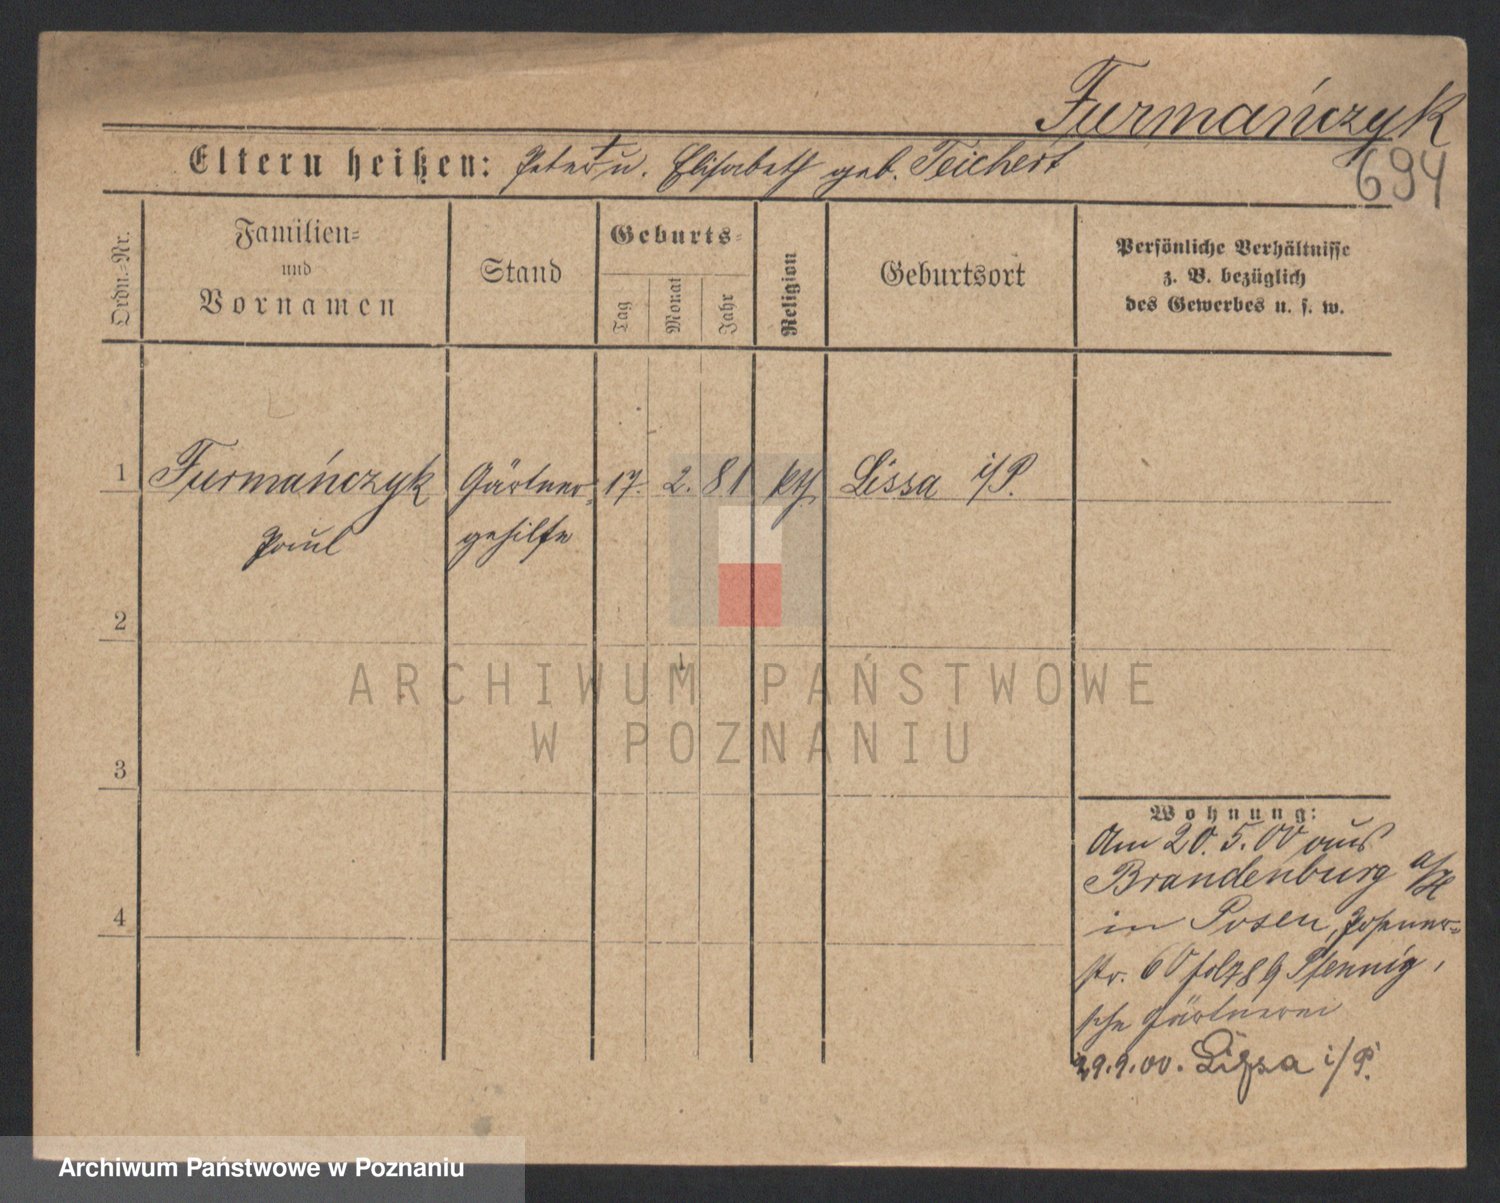 Furmańczyk
694
Eltern heißen: Peter † u. Elisabeth geb. Teichert
Ordn.=Nr.
Familien=
und
Vornamen
Stand
Geburts=
Tag
Monat
Jahr
Religion
Geburtsort
Persönliche Verhältnisse
z. B. bezüglich
des Gewerbes u. s. w.
1
Furmańczyk
Paul
Gärtner=
gehilfe
17.
2.
81
kth.
Lissa i/P.
2
3
4
Wohnung:
Am 20. 5. 00 aus
Brandenburg a/H
in Posen, Posener=
str. 60 Pfennig'
sche Gärtnerei
29.9.00. Lissa i/P.
ARCHIWUM PAŃSTWOWE
W POZNANIU
Archiwum Państwowe w Poznaniu